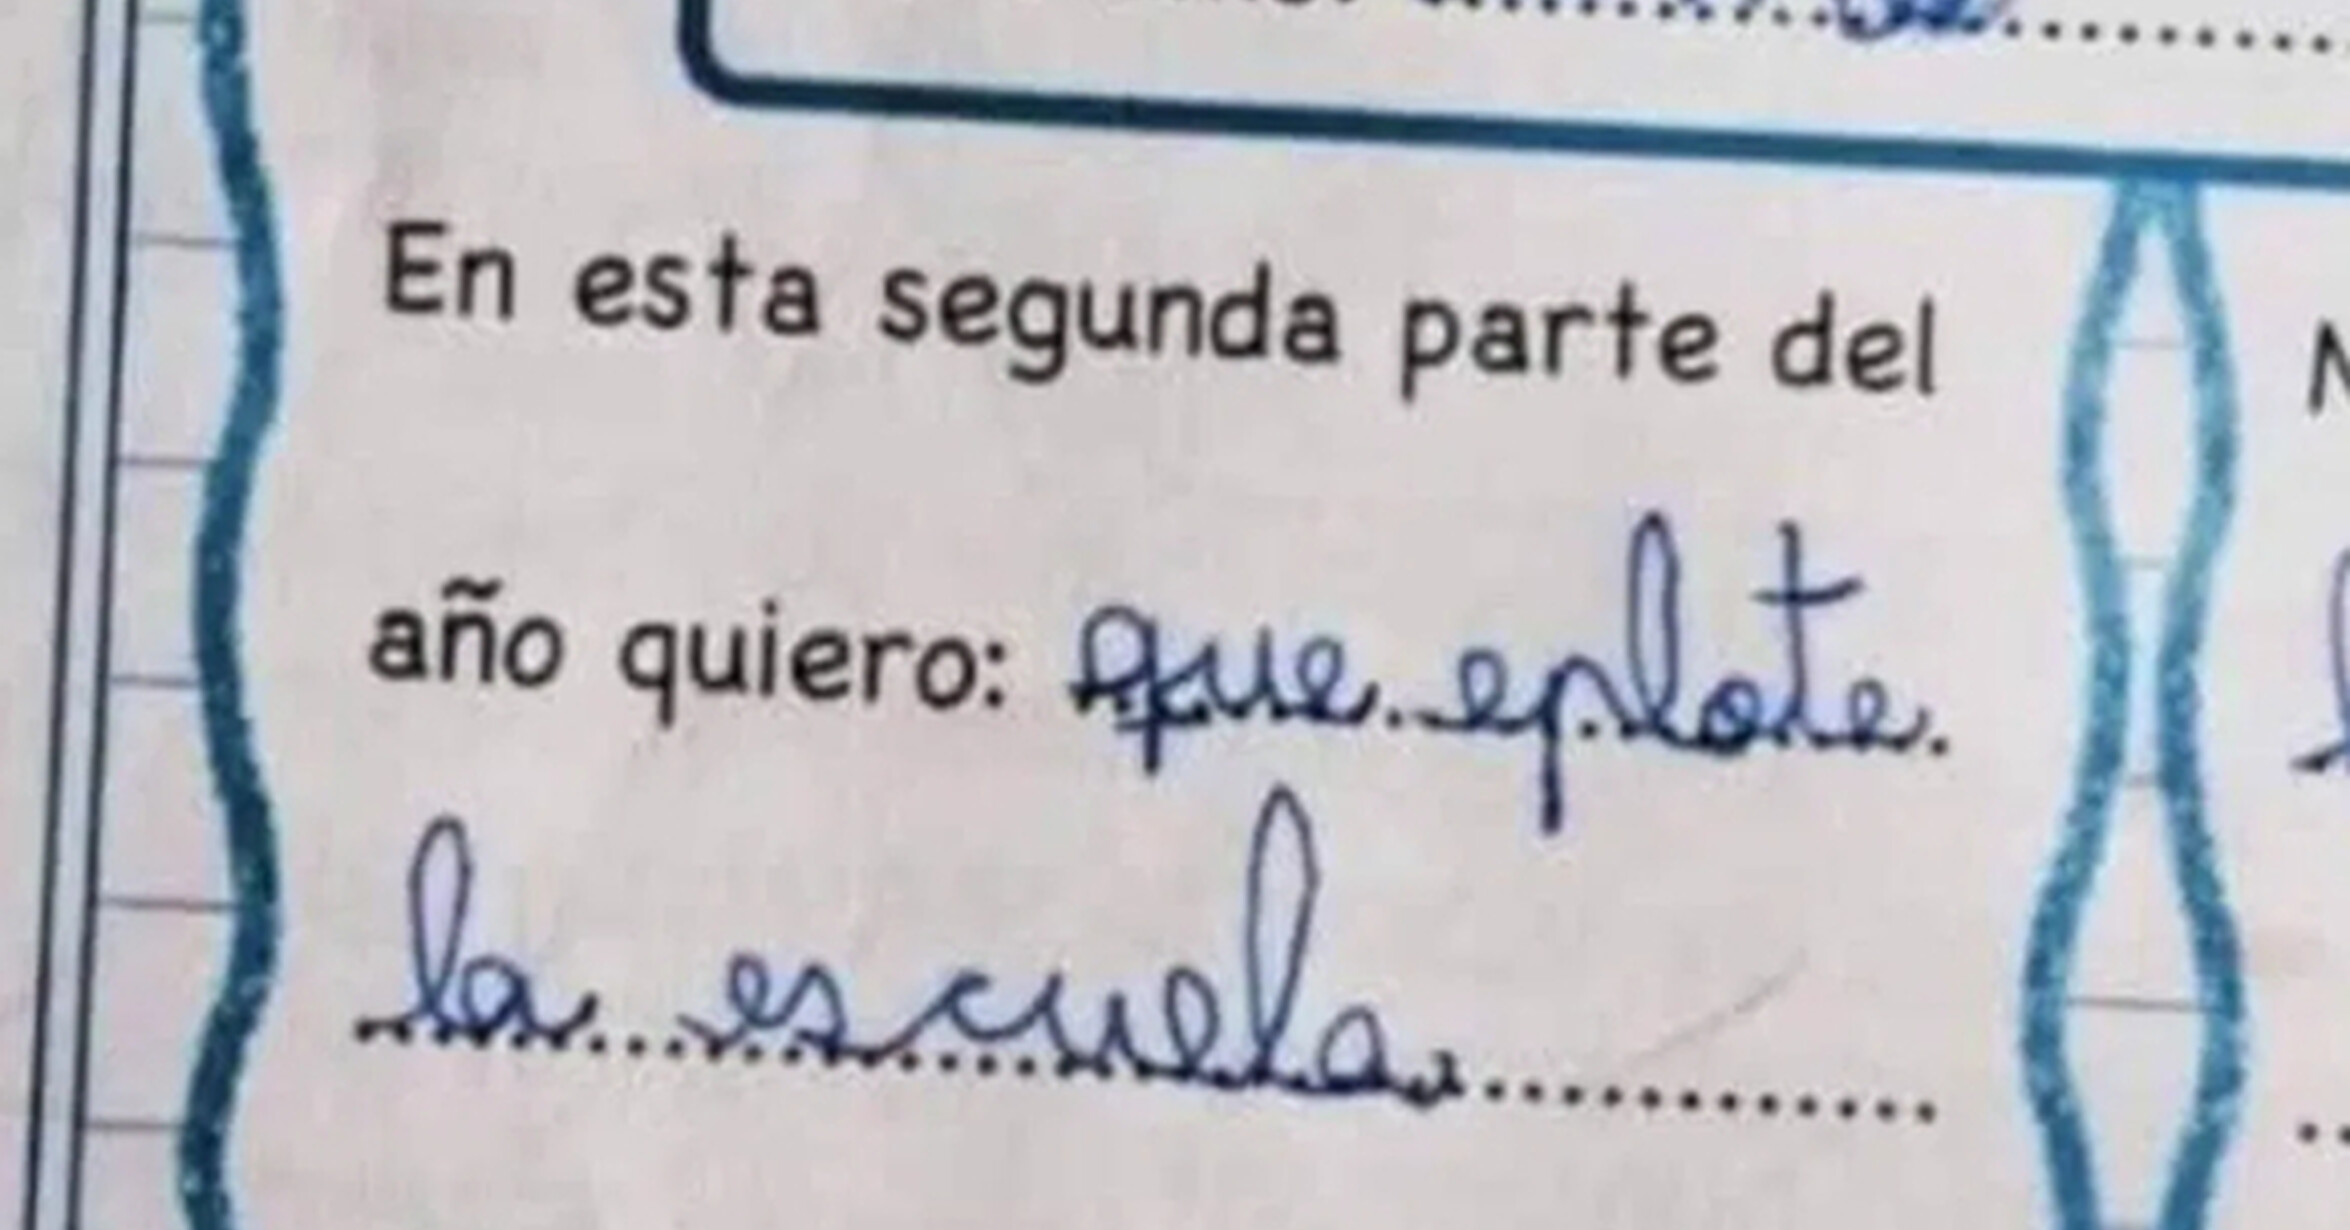 En esta segunda parte del
año quiero: que eplote.
la escuela.